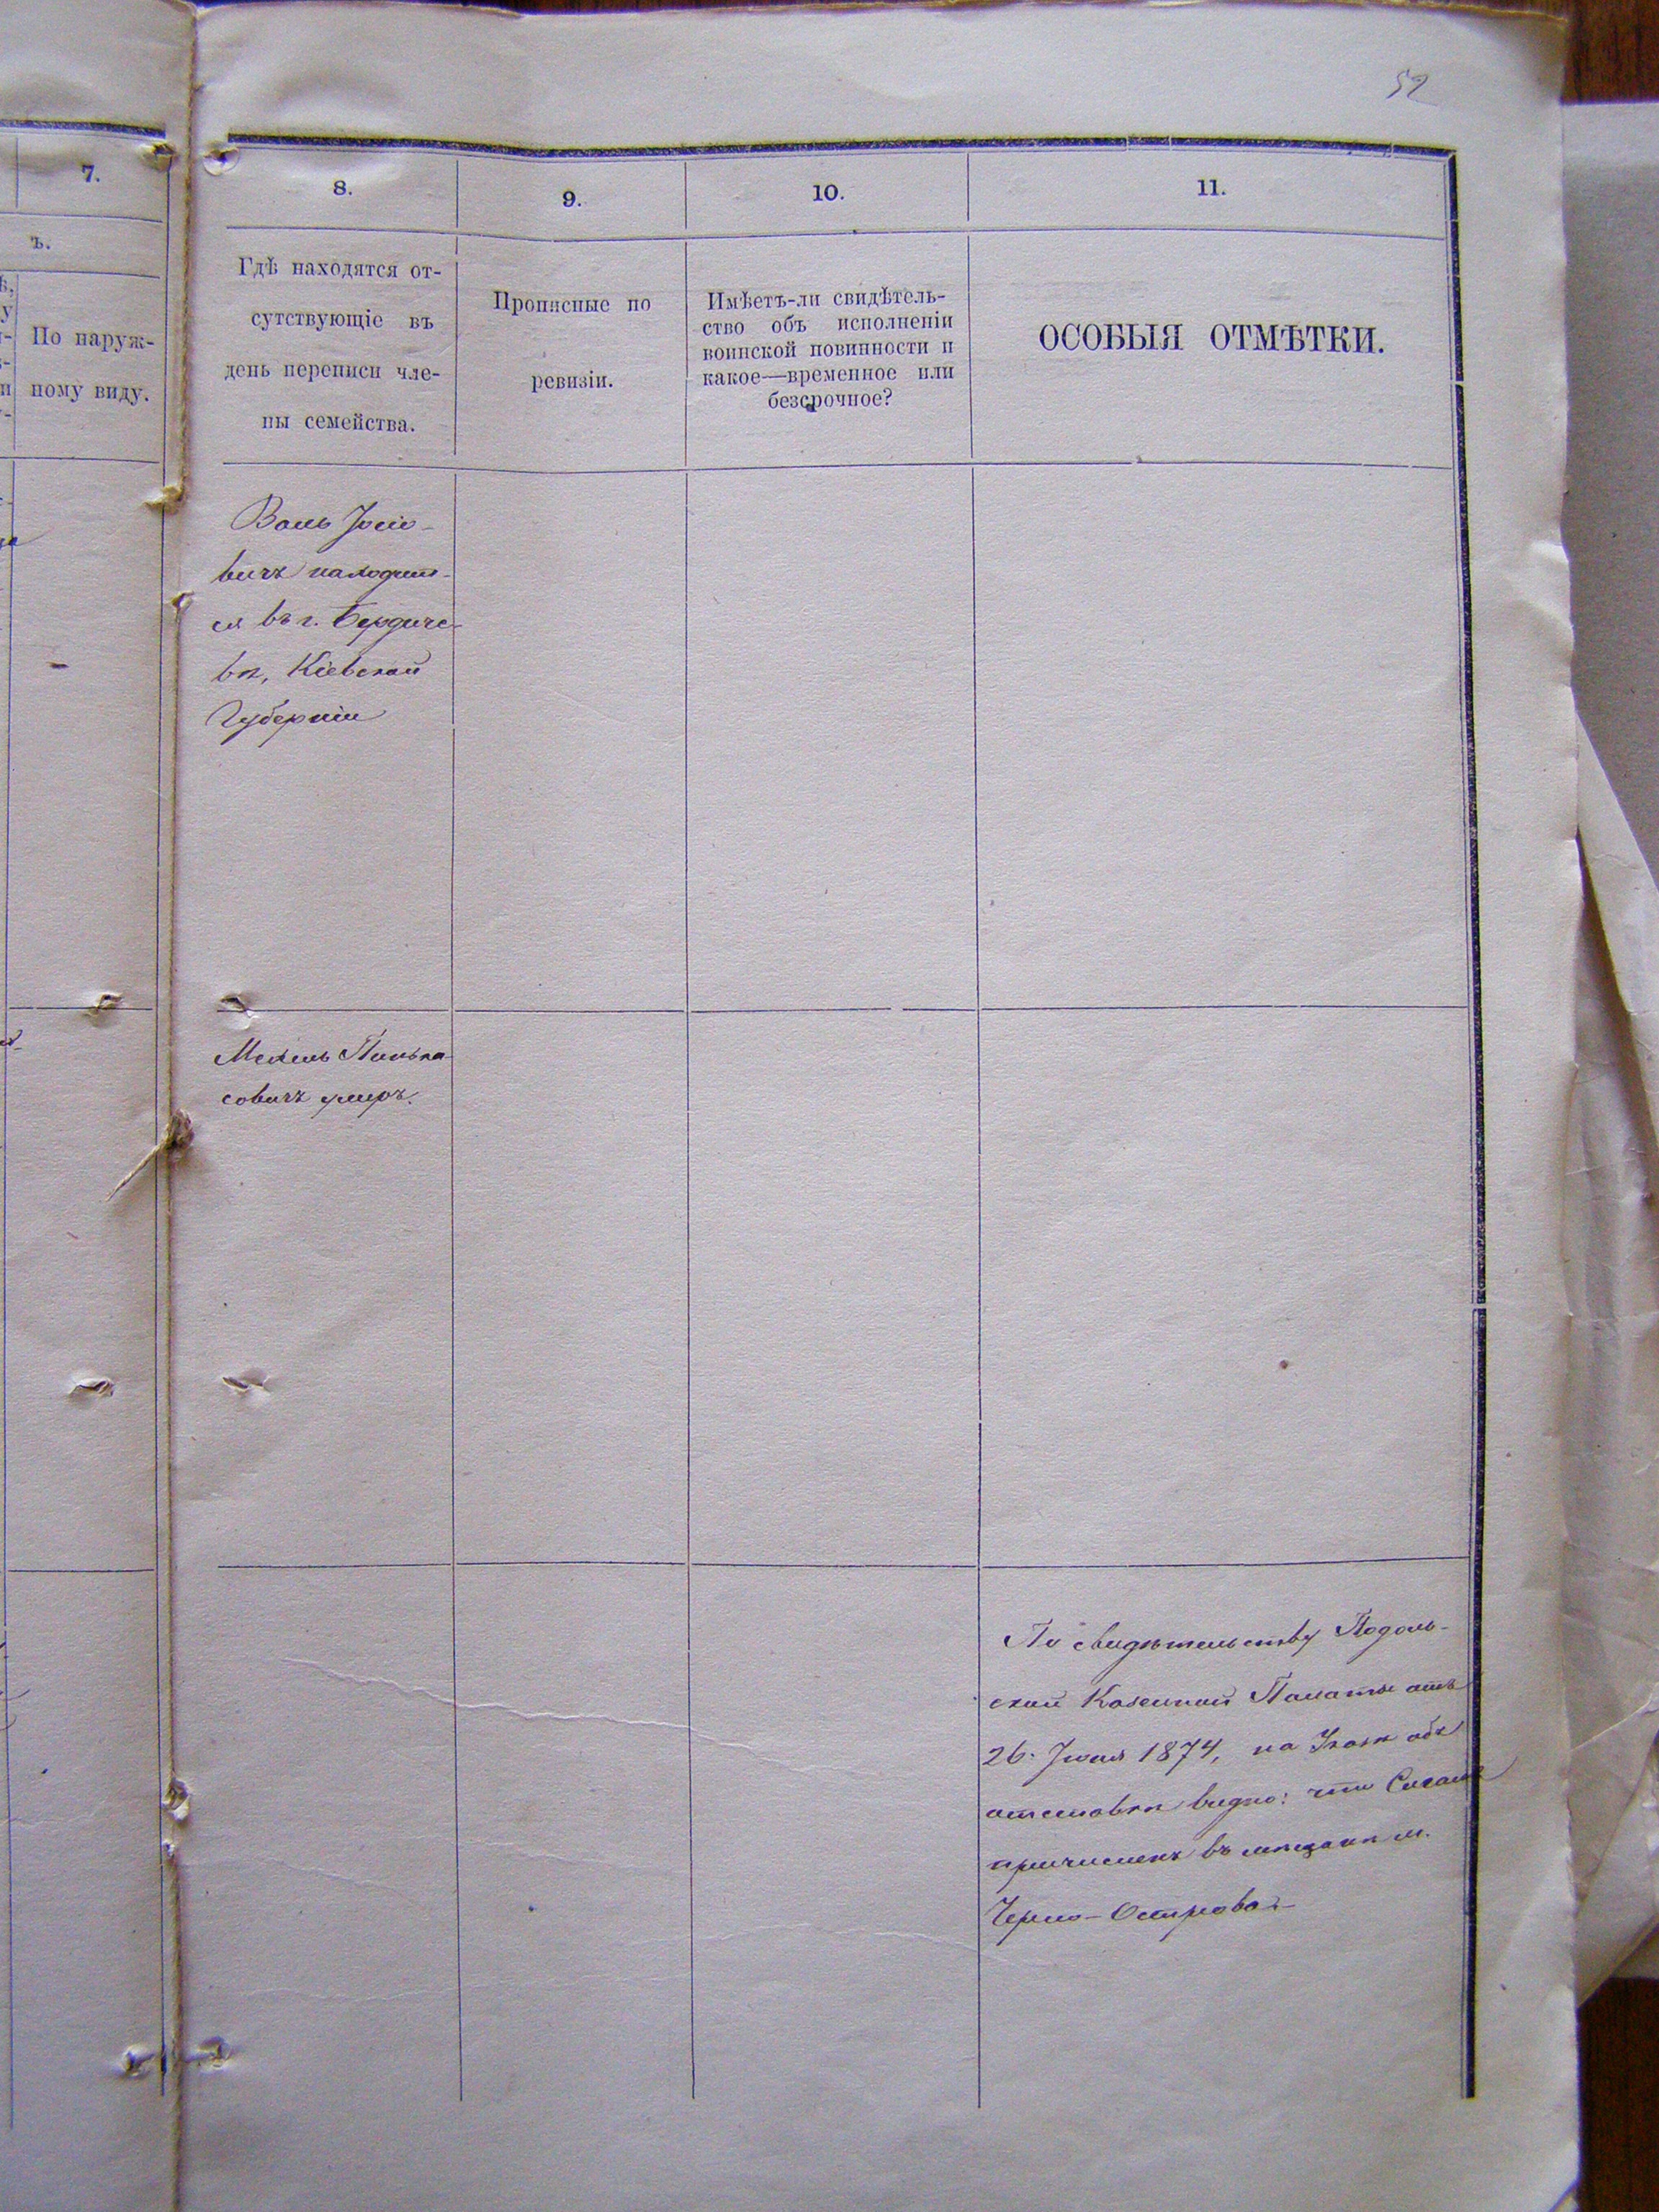 52
7.
8.
9.
10.
11.
ъ.
По наруж-
ному виду.
Гдѣ находятся от-
сутствующіе въ
день переписи чле-
ны семейства.
Прописные по
ревизіи.
Имѣетъ-ли свидѣтель-
ство объ исполненіи
воинской повинности и
какое—временное или
безсрочное?
ОСОБЫЯ ОТМѢТКИ.
Іосіо-
вичъ находит-
ся въ г. Бердиче-
вѣ, Кіевской
Губерніи
Пинька-
совичъ умеръ.
По свидѣтельству Подоль-
ской Казенной Палаты отъ
26. Іюля 1874, на Указѣ объ
отставкѣ видно: что
причисленъ въ мѣщане м.
Черно-Острова.